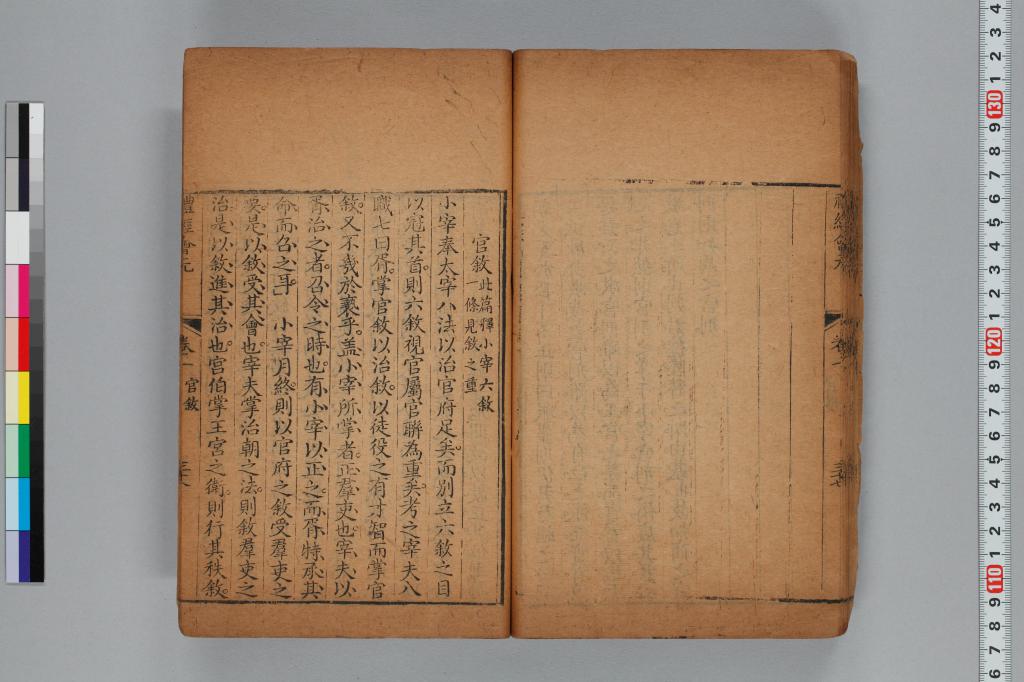 禮經會元
卷一
官敘 此篇釋小宰六敘一條見敘之重
小宰奉太宰八法以治官府足矣而別立六敘之目
以冠其首則六敘視官屬官聯為重矣考之宰夫八
職七曰胥掌官敘以治敘以徒役之有才智而掌官
敘又不幾於褻乎蓋小宰所掌者正羣吏也宰夫以
胥治之者召令之時也有小宰以正之而胥特承其
命而召之耳 小宰月終則以官府之敘受羣吏之
要是以敘受其會也宰夫掌治朝之法則敘羣吏之
治是以敘進其治也宮伯掌王宮之衛則行其秩敘
禮經會元 卷一 官敘